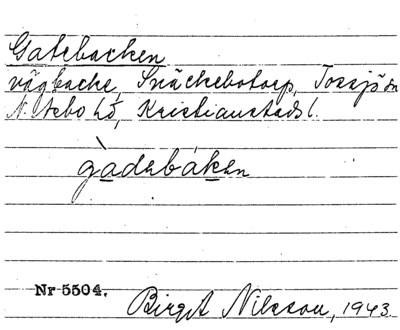 Gatebacken
vägbacke, Snäckebotorp, Tossjö sn
N. Åsbo hd, Kristianstads l.
gàdebáken
Nr 5504.
Birgit Nilsson, 1943.